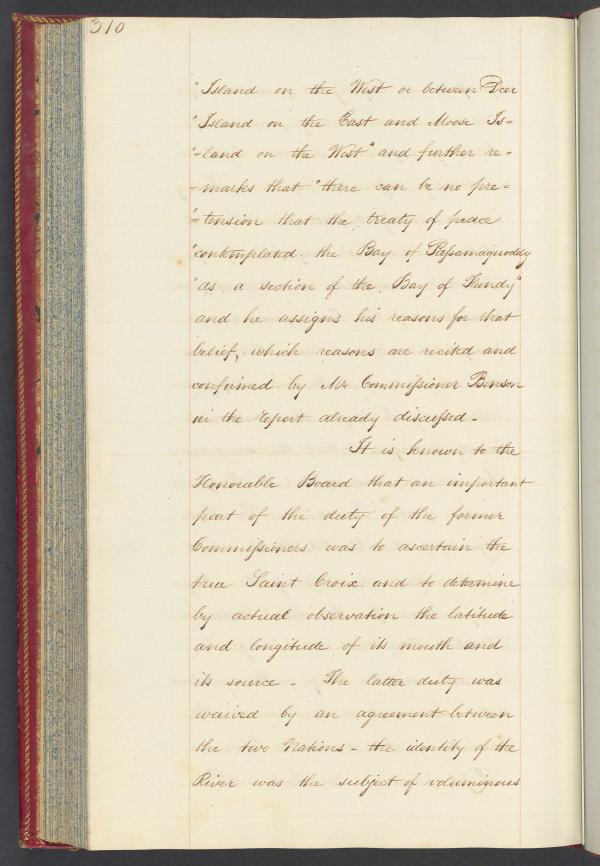 310
"Island on the West or between Deer
"Island on the East and Moose Is=
"=land on the West" and further re=
=marks that "there can be no pre=
"=tension that the treaty of peace
"contemplated the Bay of Paſsamaquoddy
"as a section of the Bay of Fundy"
and he assigns his reasons for that
belief, which reasons are recited and
confirmed by Mr Commiſsioner Benson
in the report already discuſsed.
It is known to the
Honorable Board that an important
part of the duty of the former
Commiſsioners was to ascertain the
true Saint Croix and to determine
by actual observation the latitude
and longitude of its mouth and
its source - The latter duty was
waived by an agreement between
the two Nations - the identity of the
River was the subject of voluminous